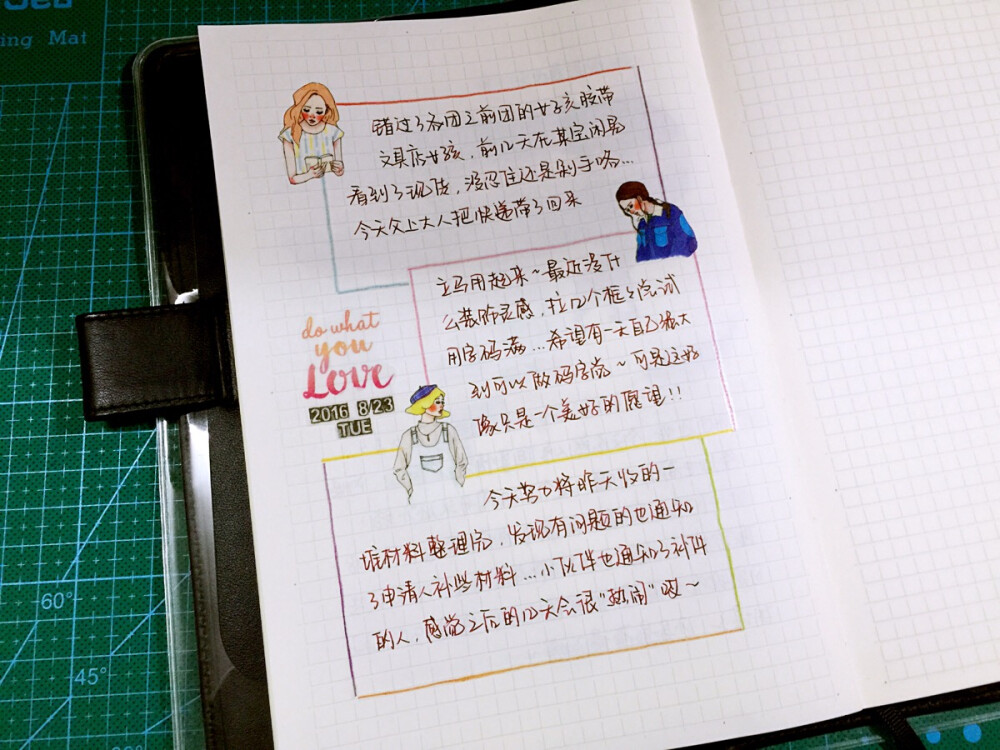 ing Mat
错过了各团之前团的女孩胶带
文具店女孩，前几天在某宝闲鱼
看到了现货，没忍住还是剁手咯...
今天父上大人把快递带了回来
立马用起来~最近没什
么装饰灵感，拉几个框々尝试
用字码满...希望有一天自己强大
到可以做码字党~可是这好
像只是一个美好的愿望!!
do what
you
Love
2016 8/23
TUE
今天努力将昨天收的一
堆材料整理完，发现有问题的也通知
了申请人补些材料...小伙伴也通知了补件
的人，感觉之后的几天会很"热闹"哎~
60°
45°